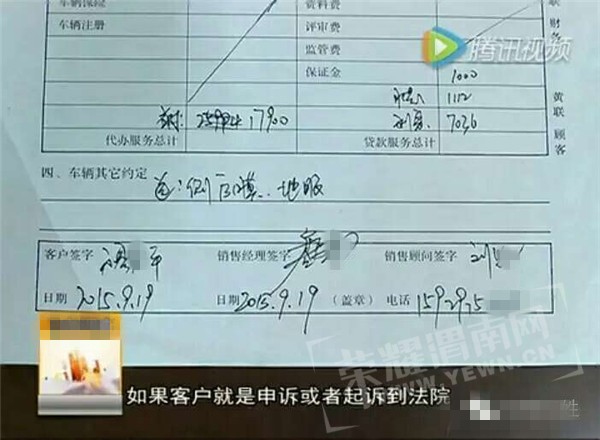 车辆保险
资料费
联
财
务
车辆注册
评审费
腾讯视频
监管费
保证金
1000
1112
黄
联
顾
客
17900
7026
代办服务总计
贷款服务总计
四、车辆其它约定
送:侧后膜、地胶
客户签字
销售经理签字
销售顾问签字
日期 2015.9.19
日期 2015.9.19 (盖章)
电话 1592925
荣耀渭南网
WWW.YEWN.CN
如果客户就是申诉或者起诉到法院
性